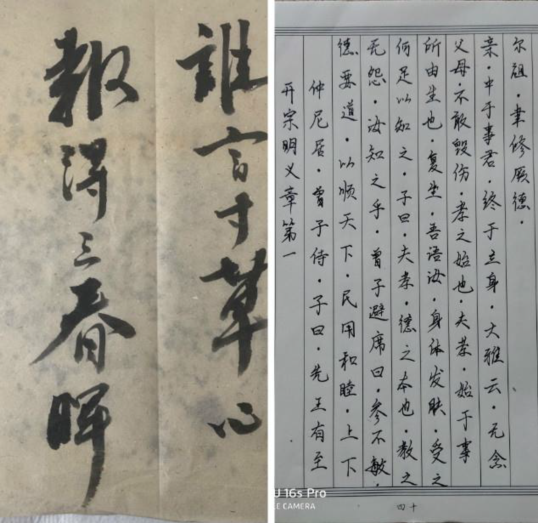 誰言寸草心
報得三春暉
开宗明义章第一
仲尼居·曾子侍·子曰·先王有至
德要道·以顺天下·民用和睦·上下
无怨·汝知之乎·曾子避席曰·参不敏·
何足以知之·子曰·夫孝·德之本也·教之
所由生也·复坐·吾语汝·身体发肤·受之
父母·不敢毁伤·孝之始也·夫孝·始于事
亲·中于事君 终于立身·大雅云·无念
尔祖·聿修厥德·
四十
U 16s Pro
LE CAMERA